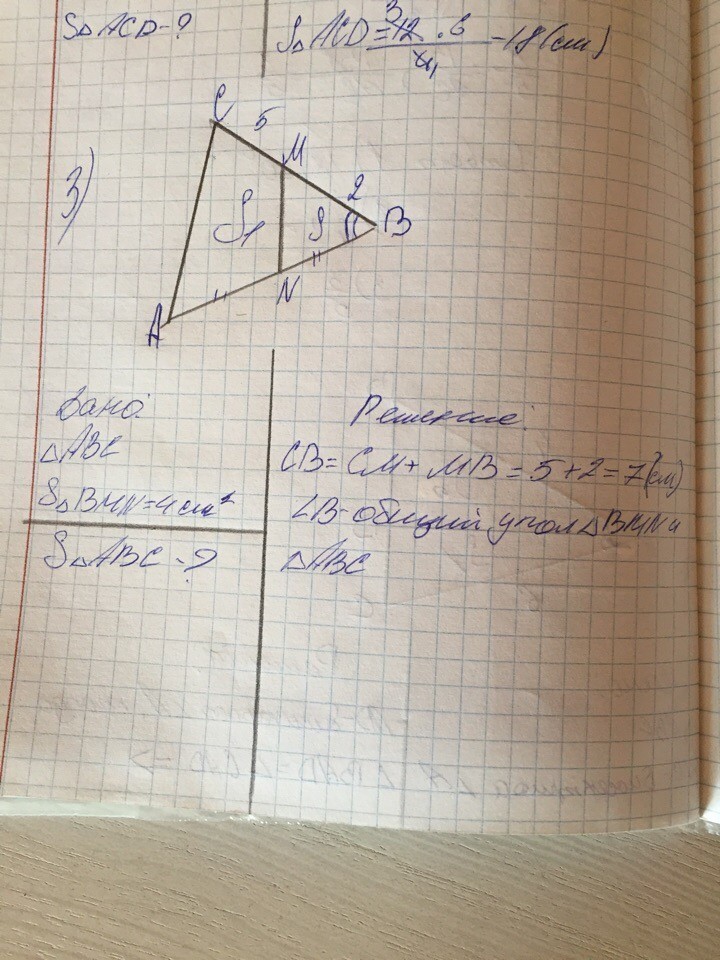 S△ACD-?
S△ACD = 12 · 6 - 18 (см)
3
4
3)
C
5
M
2
B
S1
S
N
A
Дано:
△ABC
S△BMN=4см²
S△ABC -?
Решение:
CB = CM + MB = 5 + 2 = 7 (см)
∠B-общий угол △BMN и
△ABC